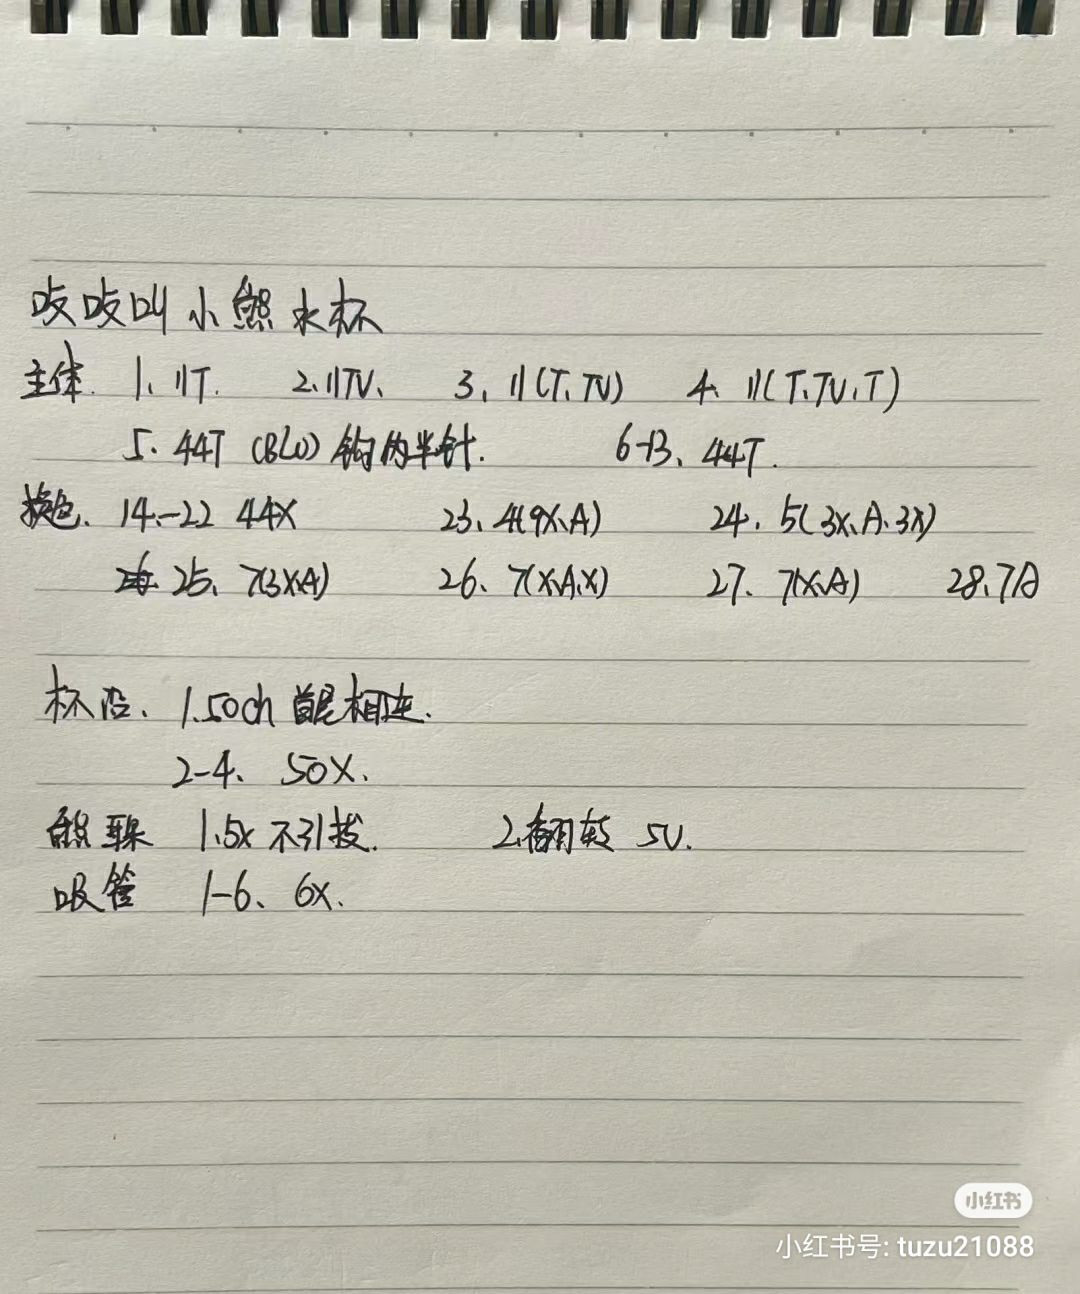 吱吱叫小熊水杯
主体. 1、11T. 2.11TV、 3、11(T、TV) 4、11(T、TV、T)
5、44T (BLO)钩内半针. 6-13、44T.
换色、14、-22 44X 23、4(9X、A) 24、5(3X、A、3X)
25、7(3X、A) 26、7(X、A、X) 27、7(X、A) 28、7A
杯沿、1.50ch 首尾相连.
2-4、50X、
熊耳朵 1.5X 不引拔. 2、翻转 5V.
吸管 1-6、6X.
小红书
小红书号: tuzu21088